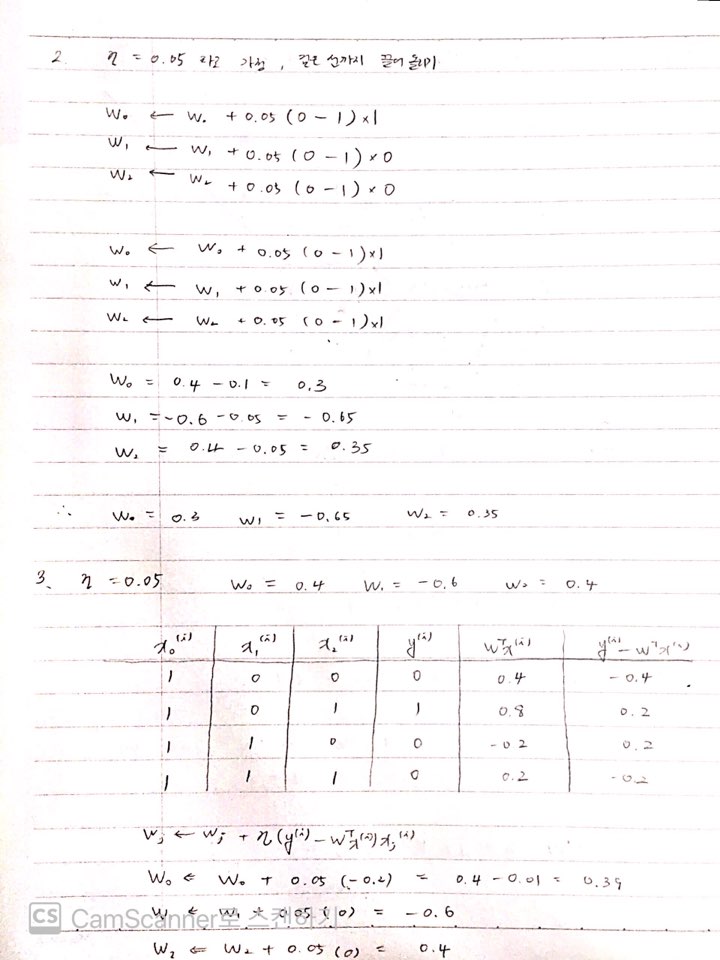 2. η = 0.05 라고 가정, 같은 선까지 끌어 올리기
W₀ ← W₀ + 0.05 (0 - 1) × 1
W₁ ← W₁ + 0.05 (0 - 1) × 0
W₂ ← W₂ + 0.05 (0 - 1) × 0
W₀ ← W₀ + 0.05 (0 - 1) × 1
W₁ ← W₁ + 0.05 (0 - 1) × 1
W₂ ← W₂ + 0.05 (0 - 1) × 1
W₀ = 0.4 - 0.1 = 0.3
W₁ = -0.6 - 0.05 = -0.65
W₂ = 0.4 - 0.05 = 0.35
∴ W₀ = 0.3 W₁ = -0.65 W₂ = 0.35
3. η = 0.05 W₀ = 0.4 W₁ = -0.6 W₂ = 0.4
x₀⁽ⁱ⁾ x₁⁽ⁱ⁾ x₂⁽ⁱ⁾ y⁽ⁱ⁾ Wᵀx⁽ⁱ⁾ y⁽ⁱ⁾ - Wᵀx⁽ⁱ⁾
1 0 0 0 0.4 -0.4
1 0 1 1 0.8 0.2
1 1 0 0 -0.2 0.2
1 1 1 0 0.2 -0.2
Wⱼ ← Wⱼ + η (y⁽ⁱ⁾ - Wᵀx⁽ⁱ⁾) xⱼ⁽ⁱ⁾
W₀ ← W₀ + 0.05 (-0.2) = 0.4 - 0.01 = 0.39
W₁ ← W₁ + 0.05 (0) = -0.6
CS CamScanner로 스캔하기
W₂ ← W₂ + 0.05 (0) = 0.4